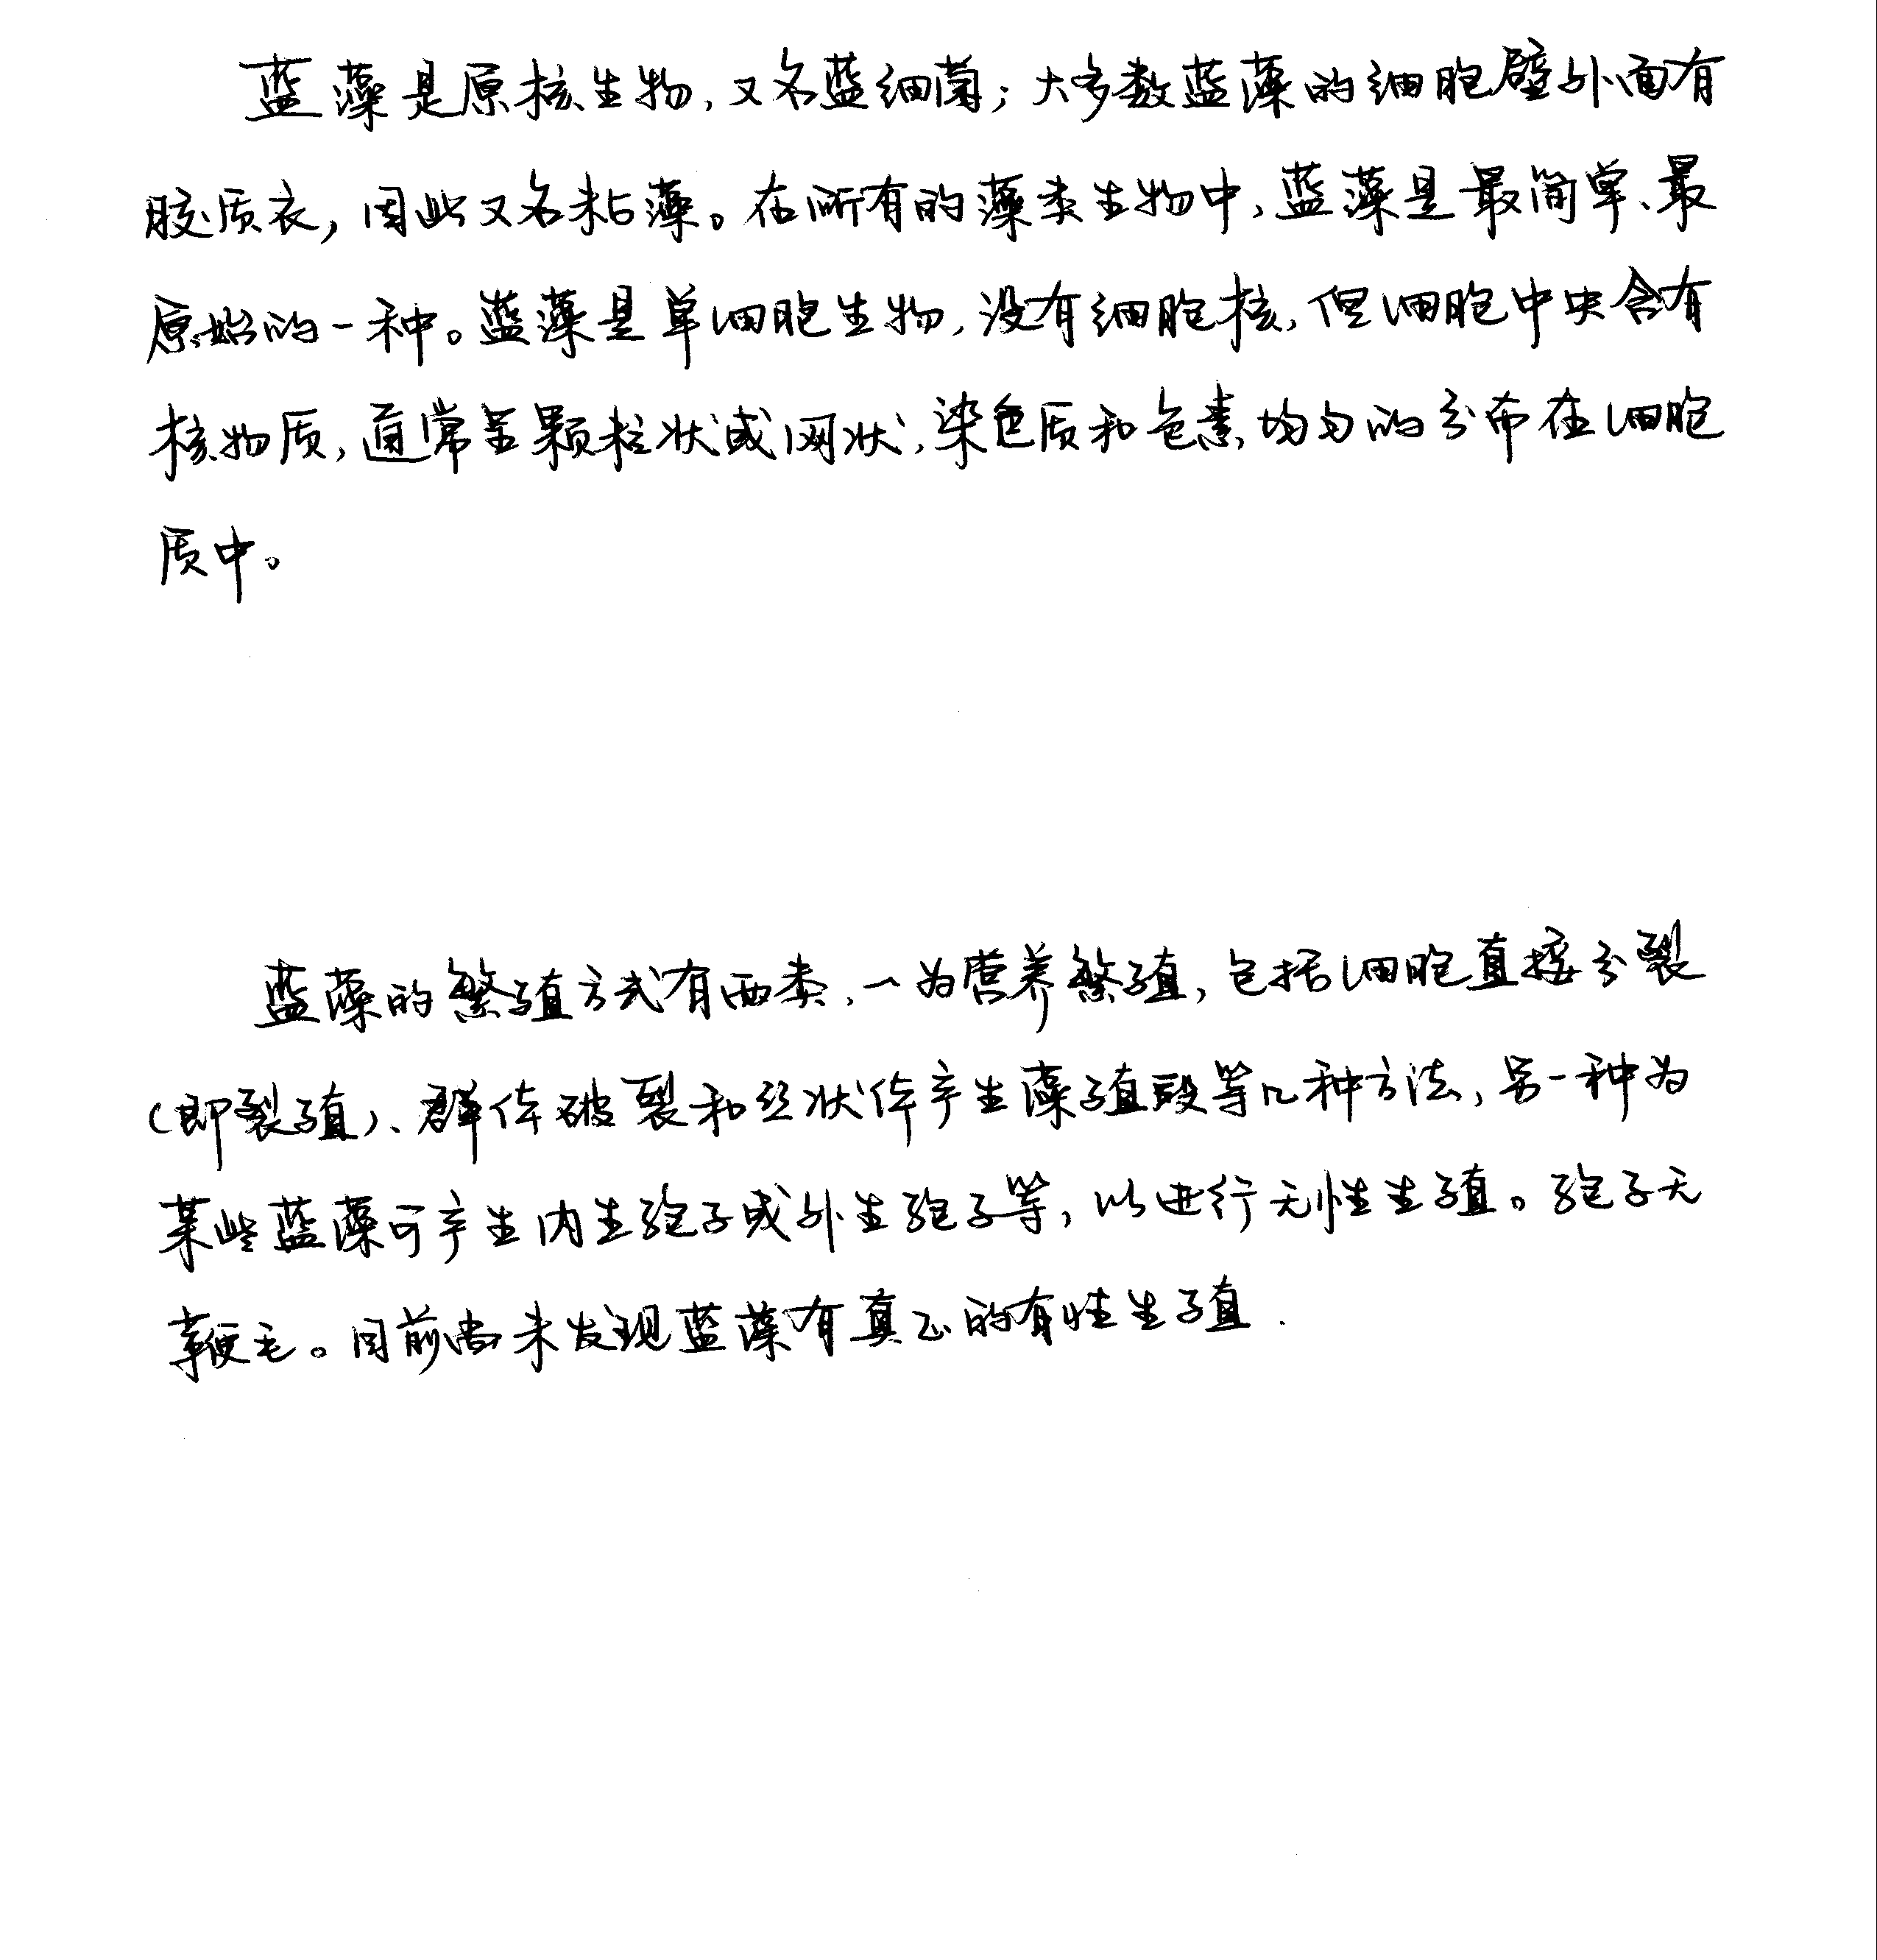 蓝藻是原核生物,又名蓝细菌;大多数蓝藻的细胞壁外面有
胶质衣,因此又名粘藻。在所有的藻类生物中,蓝藻是最简单、最
原始的一种。蓝藻是单细胞生物,没有细胞核,但细胞中央含有
核物质,通常呈颗粒状或网状,染色质和色素均匀的分布在细胞
质中。
蓝藻的繁殖方式有两类,一为营养繁殖,包括细胞直接分裂
(即裂殖)、群体破裂和丝状体产生藻殖段等几种方法,另一种为
某些蓝藻可产生内生孢子或外生孢子等,以进行无性生殖。孢子无
鞭毛。目前尚未发现蓝藻有真正的有性生殖.